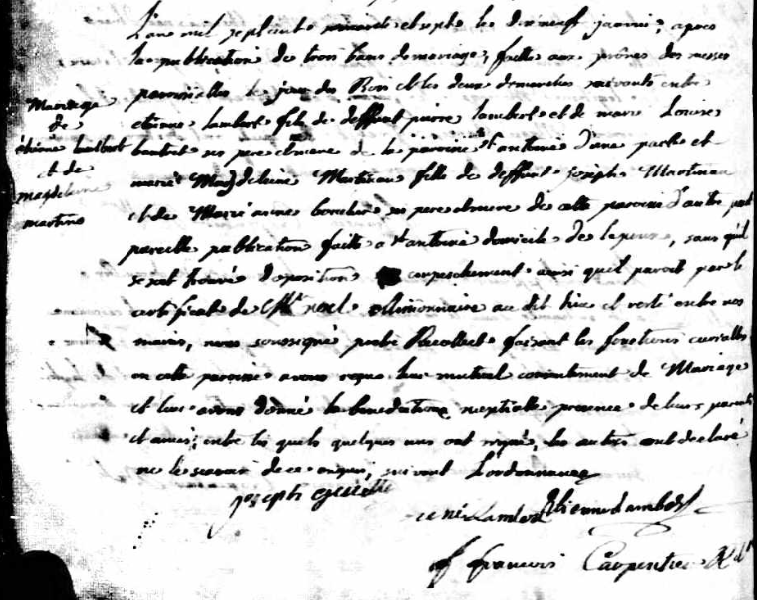 L'an mil sept cent cinquante et sept le dix neuf janvier, apres
la publication de trois bans de mariage, faitte aux prônes des messes
paroissialles le jour des Rois et les deux dimanches suivants entre
etienne lambert fils de deffunt pierre lambert et de marie Louise
ses pere et mere de la paroisse st antoine d'une part et
marie Magdeleine Martineau fille de deffunt joseph Martineau
et de Marie anne boucher ses pere et mere de cette paroisse d'autre part
pareille publication faite a st antoine domicile de l'epoux, sans qu'il
se soit trouvé d'oposition empeschement ainsi quil paroit par le
certificat de Mr noel missionnaire au dit lieu et resté entre nos
mains, nous soussigné prêtre Recollect faisant les fonctions curialles
en cette paroisse avons reçu leur mutuel consentement de Mariage
et leur avons donné la benediction nuptialle presence de leurs parents
et amis, entre les quels quelques uns ont signé, les autres ont declaré
ne le scavoir de ce enquis, suivant L'ordonnance
Mariage
de
étienne lambert
et de
magdeleine
martino
joseph
rené Lambert Etienne Lambert
f francois Carpentier R